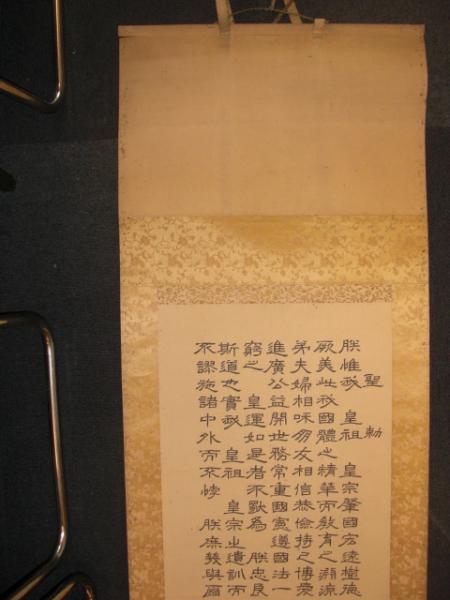 聖勅
朕惟我 皇祖 皇宗肇國宏遠樹德
厥美此我國體之精華而教育之淵源
弟夫婦相和朋友相信恭儉持己博愛
進廣公益開世務常重國憲遵國法一
窮之 皇運如是者不獨為 朕忠良
斯道也實我 皇祖 皇宗之遺訓而
不謬施諸中外而不悖 朕庶幾與爾